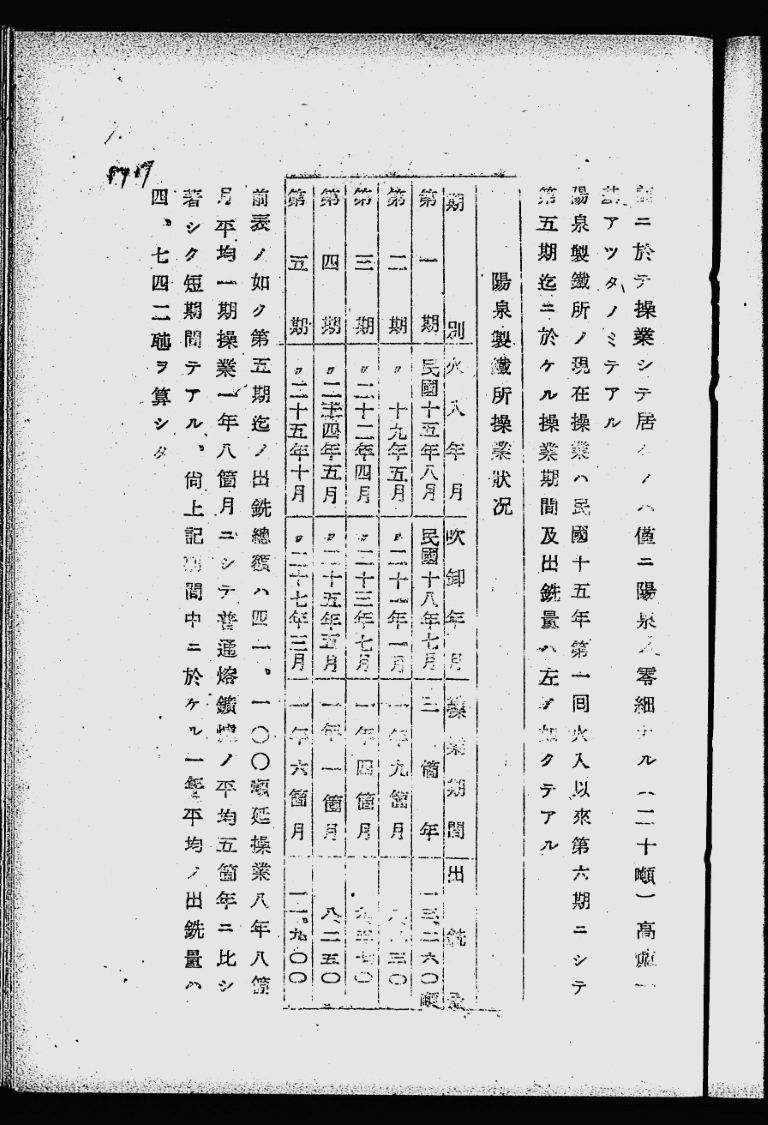 ニ於テ操業シテ居ルノハ僅ニ陽泉ノ零細ナル(二十噸)高爐一
基アツタノミテアル
陽泉製鐵所ノ現在操業ハ民國十五年第一囘火入以來第六期ニシテ
第五期迄ニ於ケル操業期間及出銑量ハ左ノ如クテアル
陽泉製鐵所操業狀況
期別 火入年月 吹卸年月 操業期間 出銑量
第一期 民國十五年八月 民國十八年七月 三箇年 一三、二六〇噸
第二期 〃十九年五月 〃二十一年一月 一年九箇月 八、 三〇
第三期 〃二十二年四月 〃二十三年七月 一年四箇月 九、 七〇
第四期 〃二十四年五月 〃二十五年五月 一年一箇月 八、二五〇
第五期 〃二十五年十月 〃二十七年三月 一年六箇月 一一、九〇〇
前表ノ如ク第五期迄ノ出銑總額ハ四一、一〇〇噸延操業八年八箇
月平均一期操業一年八箇月ニシテ普通熔鑛爐ノ平均五箇年ニ比シ
著シク短期間テアル、尙上記期間中ニ於ケル一年平均ノ出銑量ハ
四、七四二砘ヲ算シタ